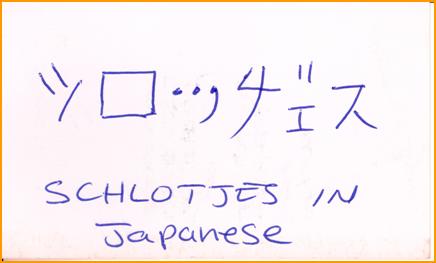 ツロッヂェス
SCHLOTJES IN
Japanese